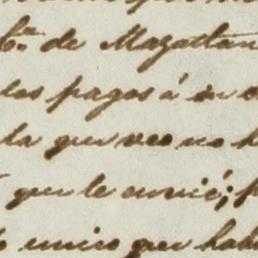 de Mazatlan
los pagos á
la que veo no h
que le envié; p
unico que hab